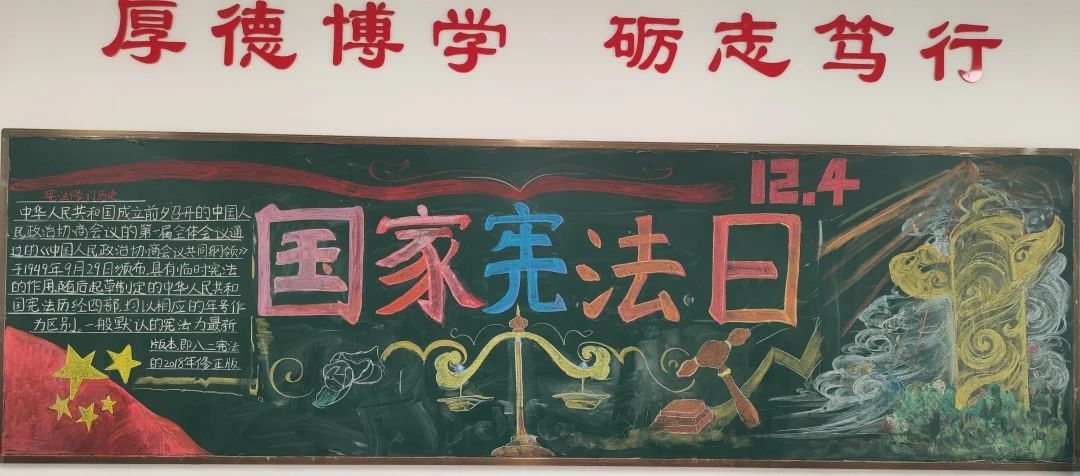 厚德博学 砺志笃行
12.4
国家宪法日
宪法修订历史
中华人民共和国成立前夕召开的中国人
民政治协商会议的第一届全体会议通
过的《中国人民政治协商会议共同纲领》
于1949年9月29日颁布,具有临时宪法
的作用,随后起草制定的中华人民共和
国宪法历经四部,均以相应的年号作
为区别,一般默认的宪法为最新
版本,即八二宪法
的2018年修正版